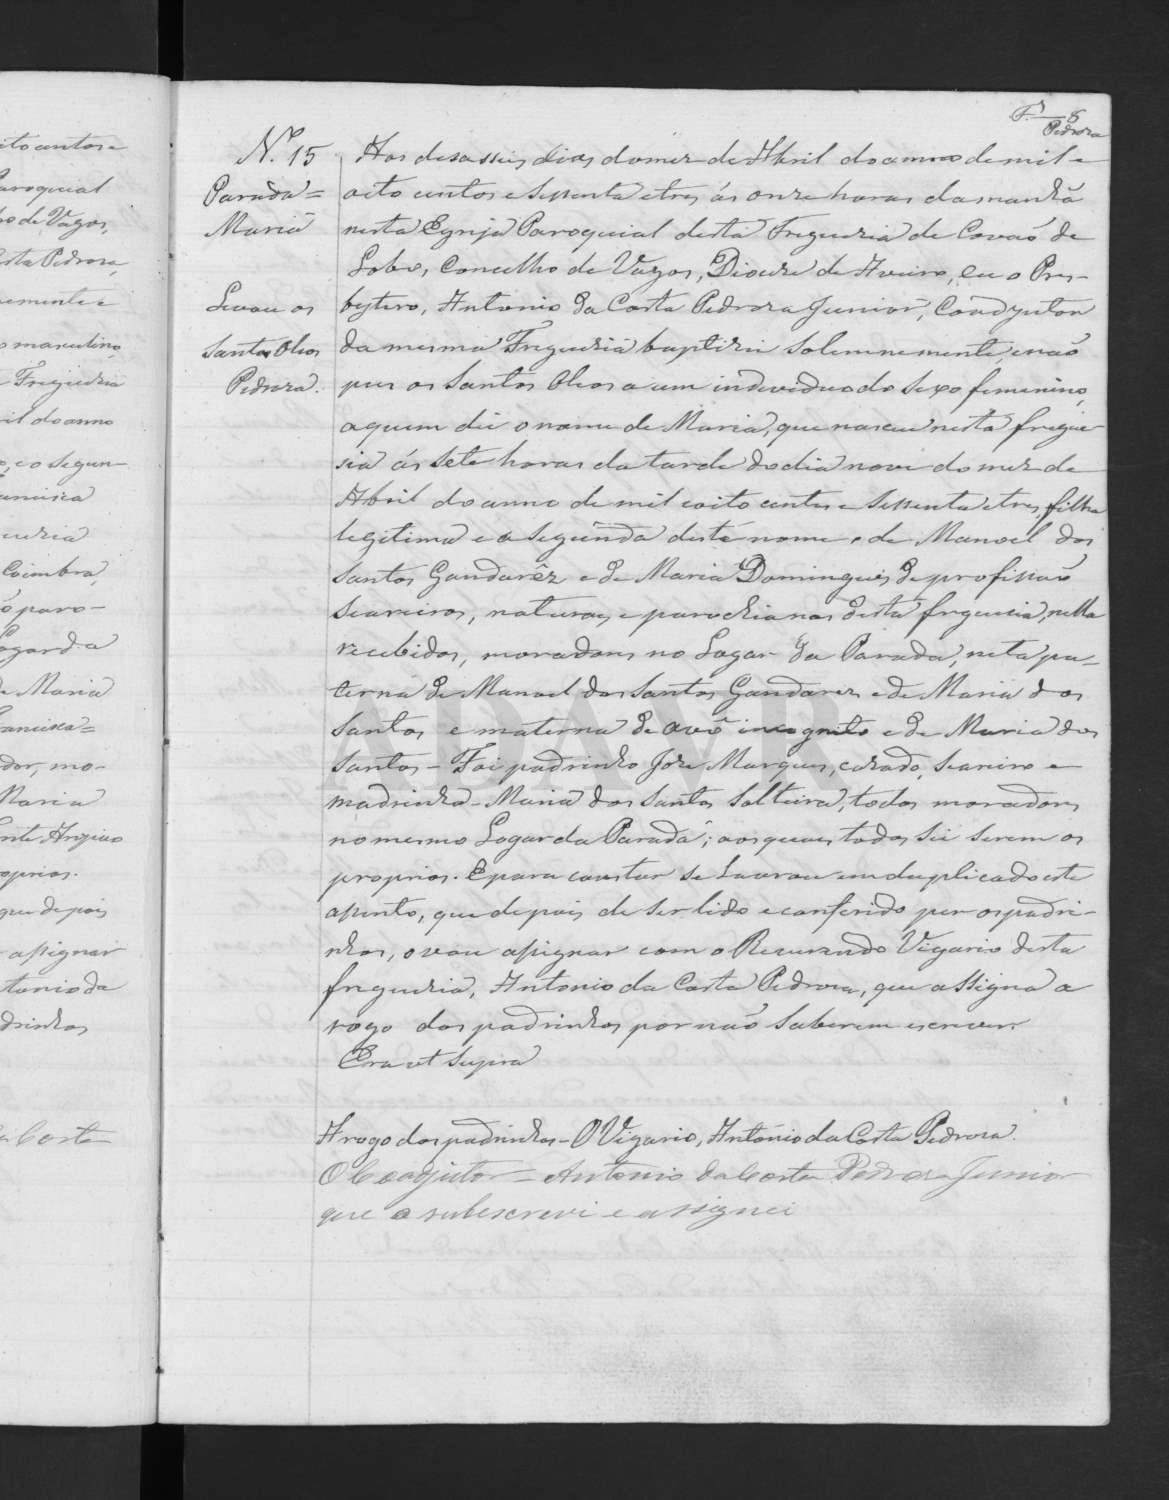 F.ª 8
Pedroza
N.º 15
Parada =
Maria
Levou os
Santos Oleos
Pedroza.
Aos desasseis dias do mez de Abril do anno de mil e
oito centos e sessenta e tres ás onze horas da manhã
nesta Egreja Paroquial desta Freguezia de Covaõ de
Lobo, Concelho de Vagos, Dioceze de Aveiro, eu o Pres-
bytero, Antonio da Costa Pedroza Junior, Coadjutor
da mesma Freguezia baptizei solemnemente, e naõ
pus os Santos Oleos a um individuo do sexo femenino,
a quem dei o nome de Maria, que nasceu nesta fregue-
sia ás sete horas da tarde do dia nove do mez de
Abril do anno de mil e oito centos e sessenta e tres, filha
legitima e a segunda deste nome, de Manoel dos
Santos Gandarêz e de Maria Domingues de profissaõ
Seareiros, naturaes e parochianos desta freguezia, nella
recebidos, moradores no Lugar da Parada, neta pa-
terna de Manoel dos Santos Gandarez e de Maria dos
Santos e materna de avô incognito e de Maria dos
Santos - Foi padrinho Joze Marques, cazado, seareiro e
madrinha - Maria dos Santos Solteira, todos moradores
no mesmo Logar da Parada; aos quaes todos sei serem os
proprios. E para constar se lavrou em duplicado este
assento, que depois de ser lido e conferido per os padri-
nhos, o vou assignar com o Reverendo Vigario desta
freguezia, Antonio da Costa Pedroza, que assigna a
rogo dos padrinhos por naõ saberem escrever.
Era ut supra
A rogo dos padrinhos - O Vigario, Antonio da Costa Pedroza.
O Coadjutor = Antonio da Costa Pedroza Junior
que o subescrevi e assignei
ito centos e
aroquial
ho de Vagos,
osta Pedroza,
nemente e
o masculino
e Freguezia
ril do anno
o, e o segun-
ancisca
uezia
Coimbra,
õ paro-
ogar da
de Maria
rancisca =
dor, mo-
Maria
nte Argeiro
oprios.
que depois
assignar
tonio da
drinhos
Costa
ADAVR